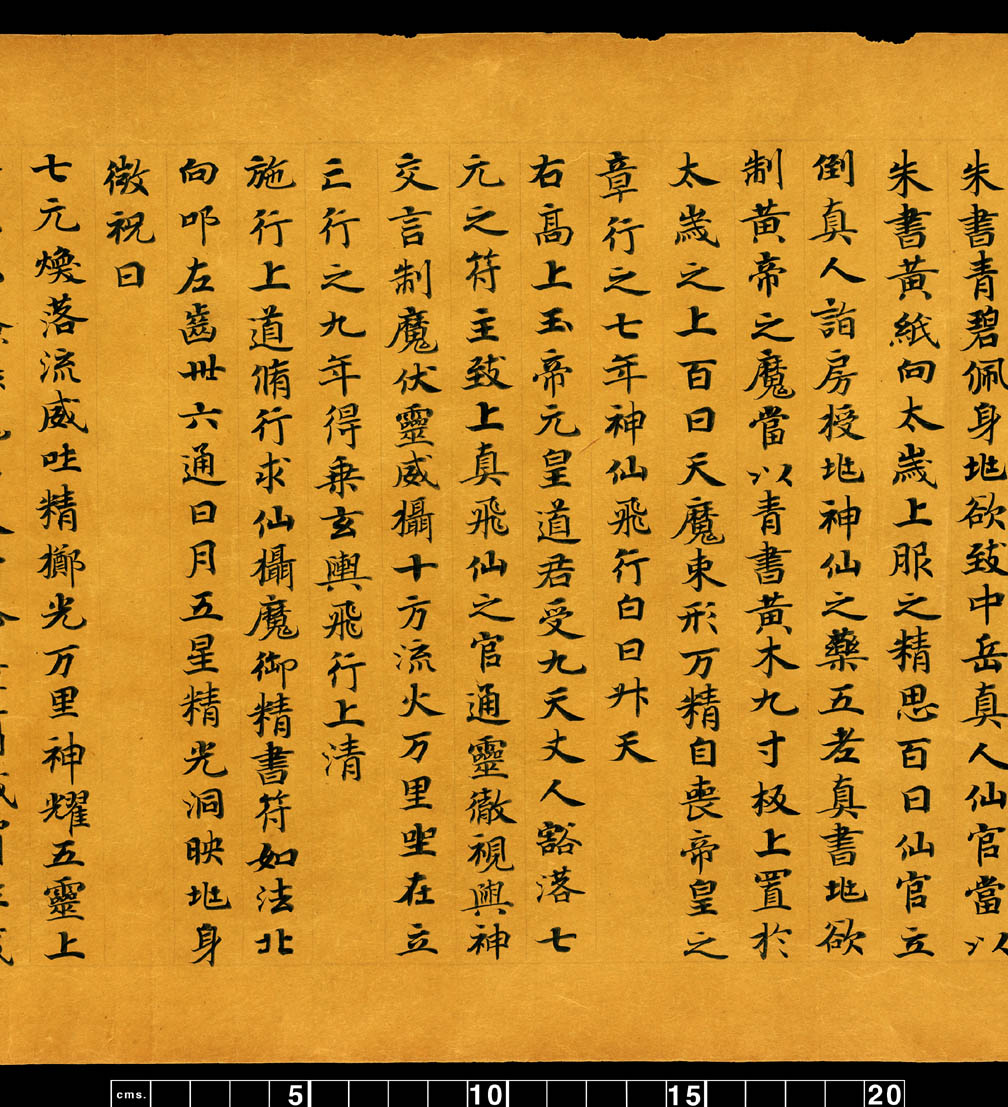 朱書青碧佩身地欲致中岳真人仙官當以
朱書黃紙向太歲上服之精思百日仙官立
倒真人詣房授地神仙之藥五老真書地欲
制黃帝之魔當以青書黃木九寸板上置於
太歲之上百日天魔束形万精自喪帝皇之
章行之七年神仙飛行白日升天
右高上玉帝元皇道君受九天丈人豁落七
元之符主致上真飛仙之官通靈徹視與神
交言制魔伏靈威攝十方流火万里坐在立
亡行之九年得乗玄輿飛行上清
施行上道脩行求仙攝魔御精書符如法北
向叩左齒卅六通日月五星精光洞映地身
微祝曰
七元煥落流威吐精擲光万里神耀五靈上
cms. 5 10 15 20